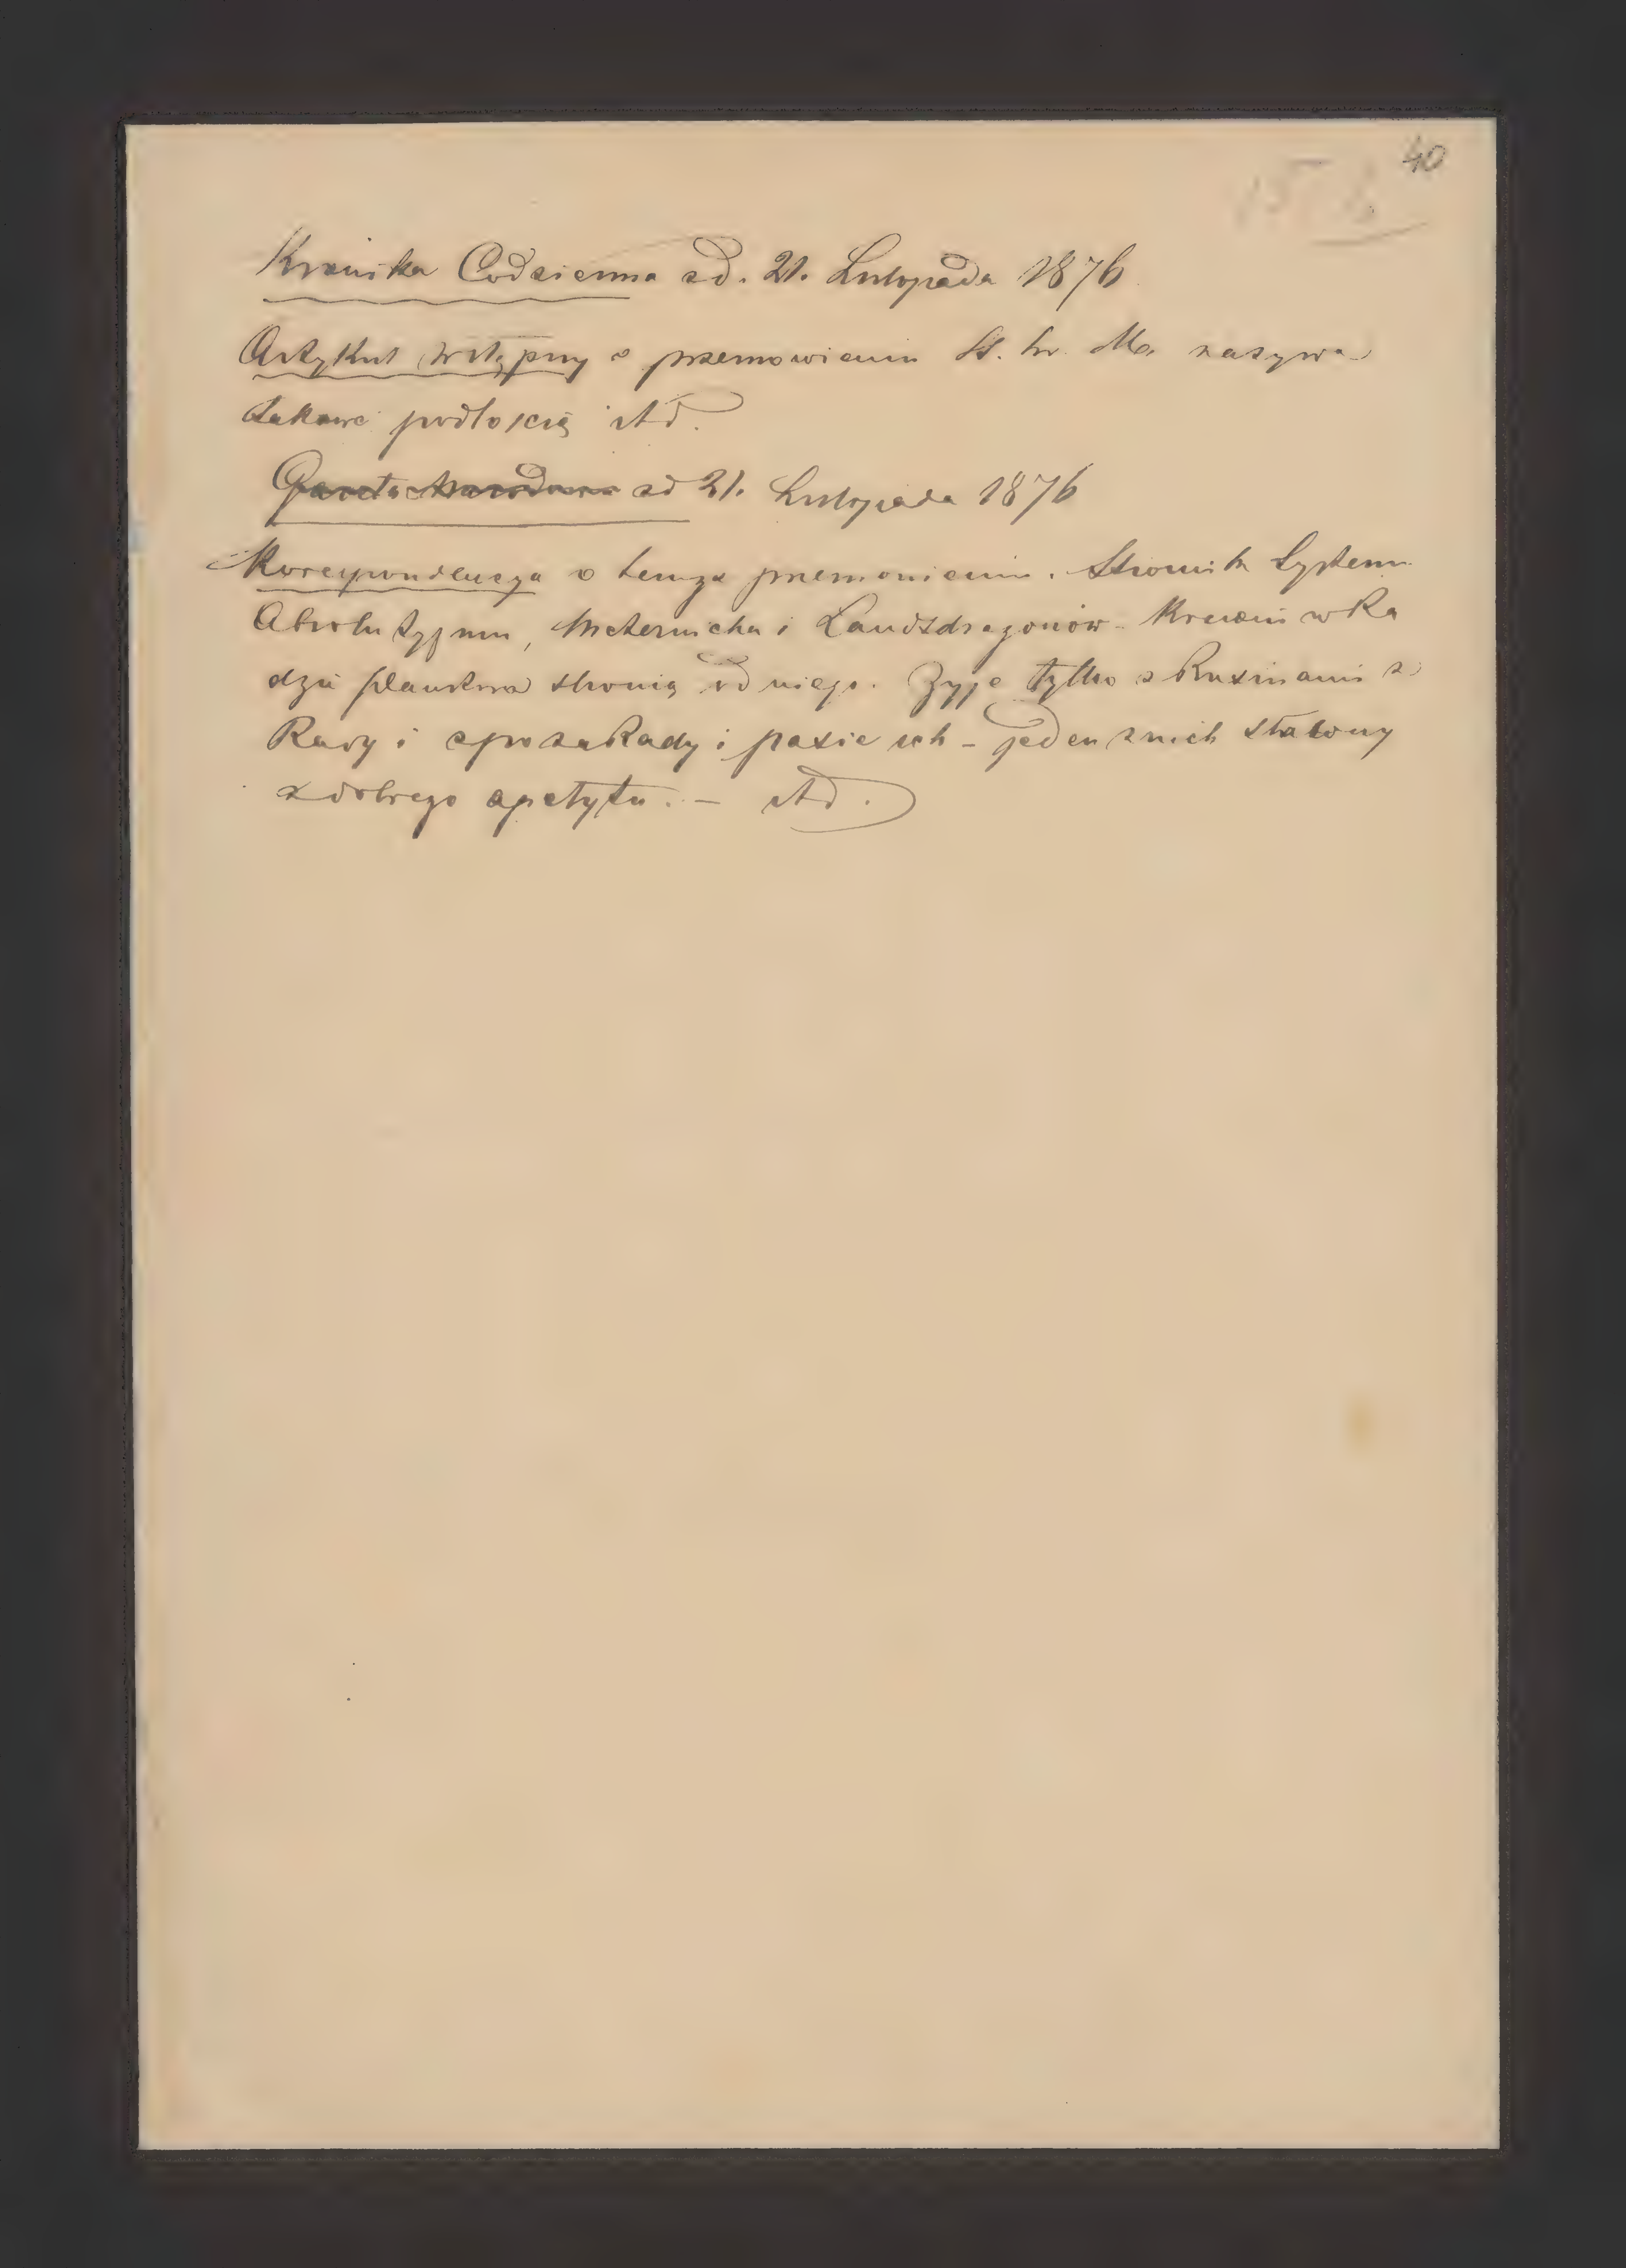 40
Kronika Codzienna zd. 21. Listopada 1876
Artykuł wstępny o przemowieniu St. hr. Mo. nazywa
takowe podłoscią itd.
Gazeta Narodowa zd 21. Listopada 1876
Korespondencya o temże przemowieniu. Stronnik Systemu
Absolutyzmu, Meternicha i Landsdragonów -
stronią od niego. Żyje tylko z Rusinami z
Rady i z poza Rady i pasie ich - jeden z nich sławny
z dobrego apetytu. - itd.